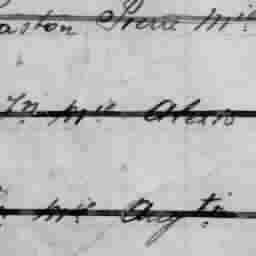 aston Pierre Mr
Jn Mr Alexis
Mr Augt